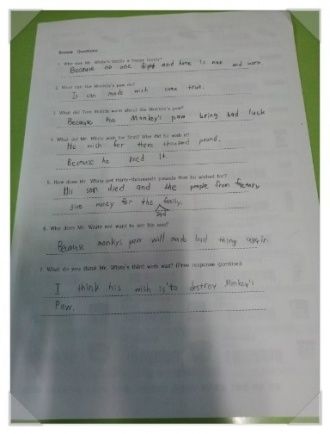 Review Questions
1. Why was Mr. White's family a happy family?
Because no one fight and home is nice and warm.
2. What can the Monkey's paw do?
It can made wish come true.
Because the Monkey's paw bring bad luck
4. What did Mr. White wish for first? Why did he wish it?
He wish for three thousand pound.
Because he need it.
5. How does Mr. White get thirty-thousands pounds that he wished for?
His son died and the people from factory
give money for the family.
sad
6. Why does Mr. White not want to see his son?
Because monkey's paw will made bad thing again.
7. What do you think Mr. White's third wish was? (Free response question)
I think his wish is to destroy Monkey's
Paw.